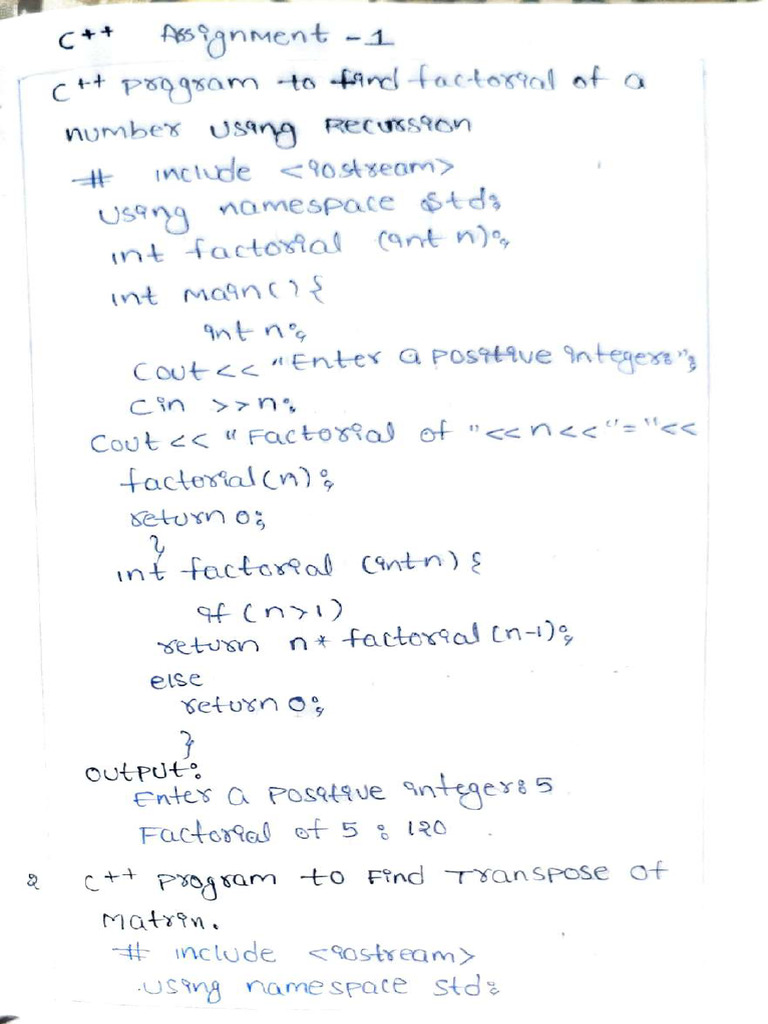 C++ Assignment - 1
C++ program to find factorial of a
number using Recurssion
# include <iostream>
using namespace std;
int factorial (int n);
int main() {
int n;
cout << "Enter a positive integer:";
cin >>n;
cout << "Factorial of "<<n<<"="<<
factorial(n);
return 0;
}
int factorial (int n) {
if (n>1)
return n* factorial (n-1);
else
return 0;
}
output:
Enter a positive integer: 5
Factorial of 5 : 120
2 C++ program to Find Transpose of
Matrin.
# include <iostream>
using namespace std;